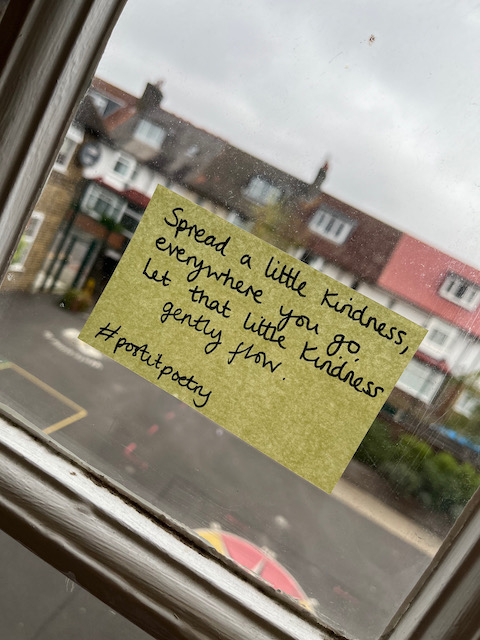 Spread a little Kindness,
everywhere you go.
Let that little Kindness
gently flow.
#postitpoetry